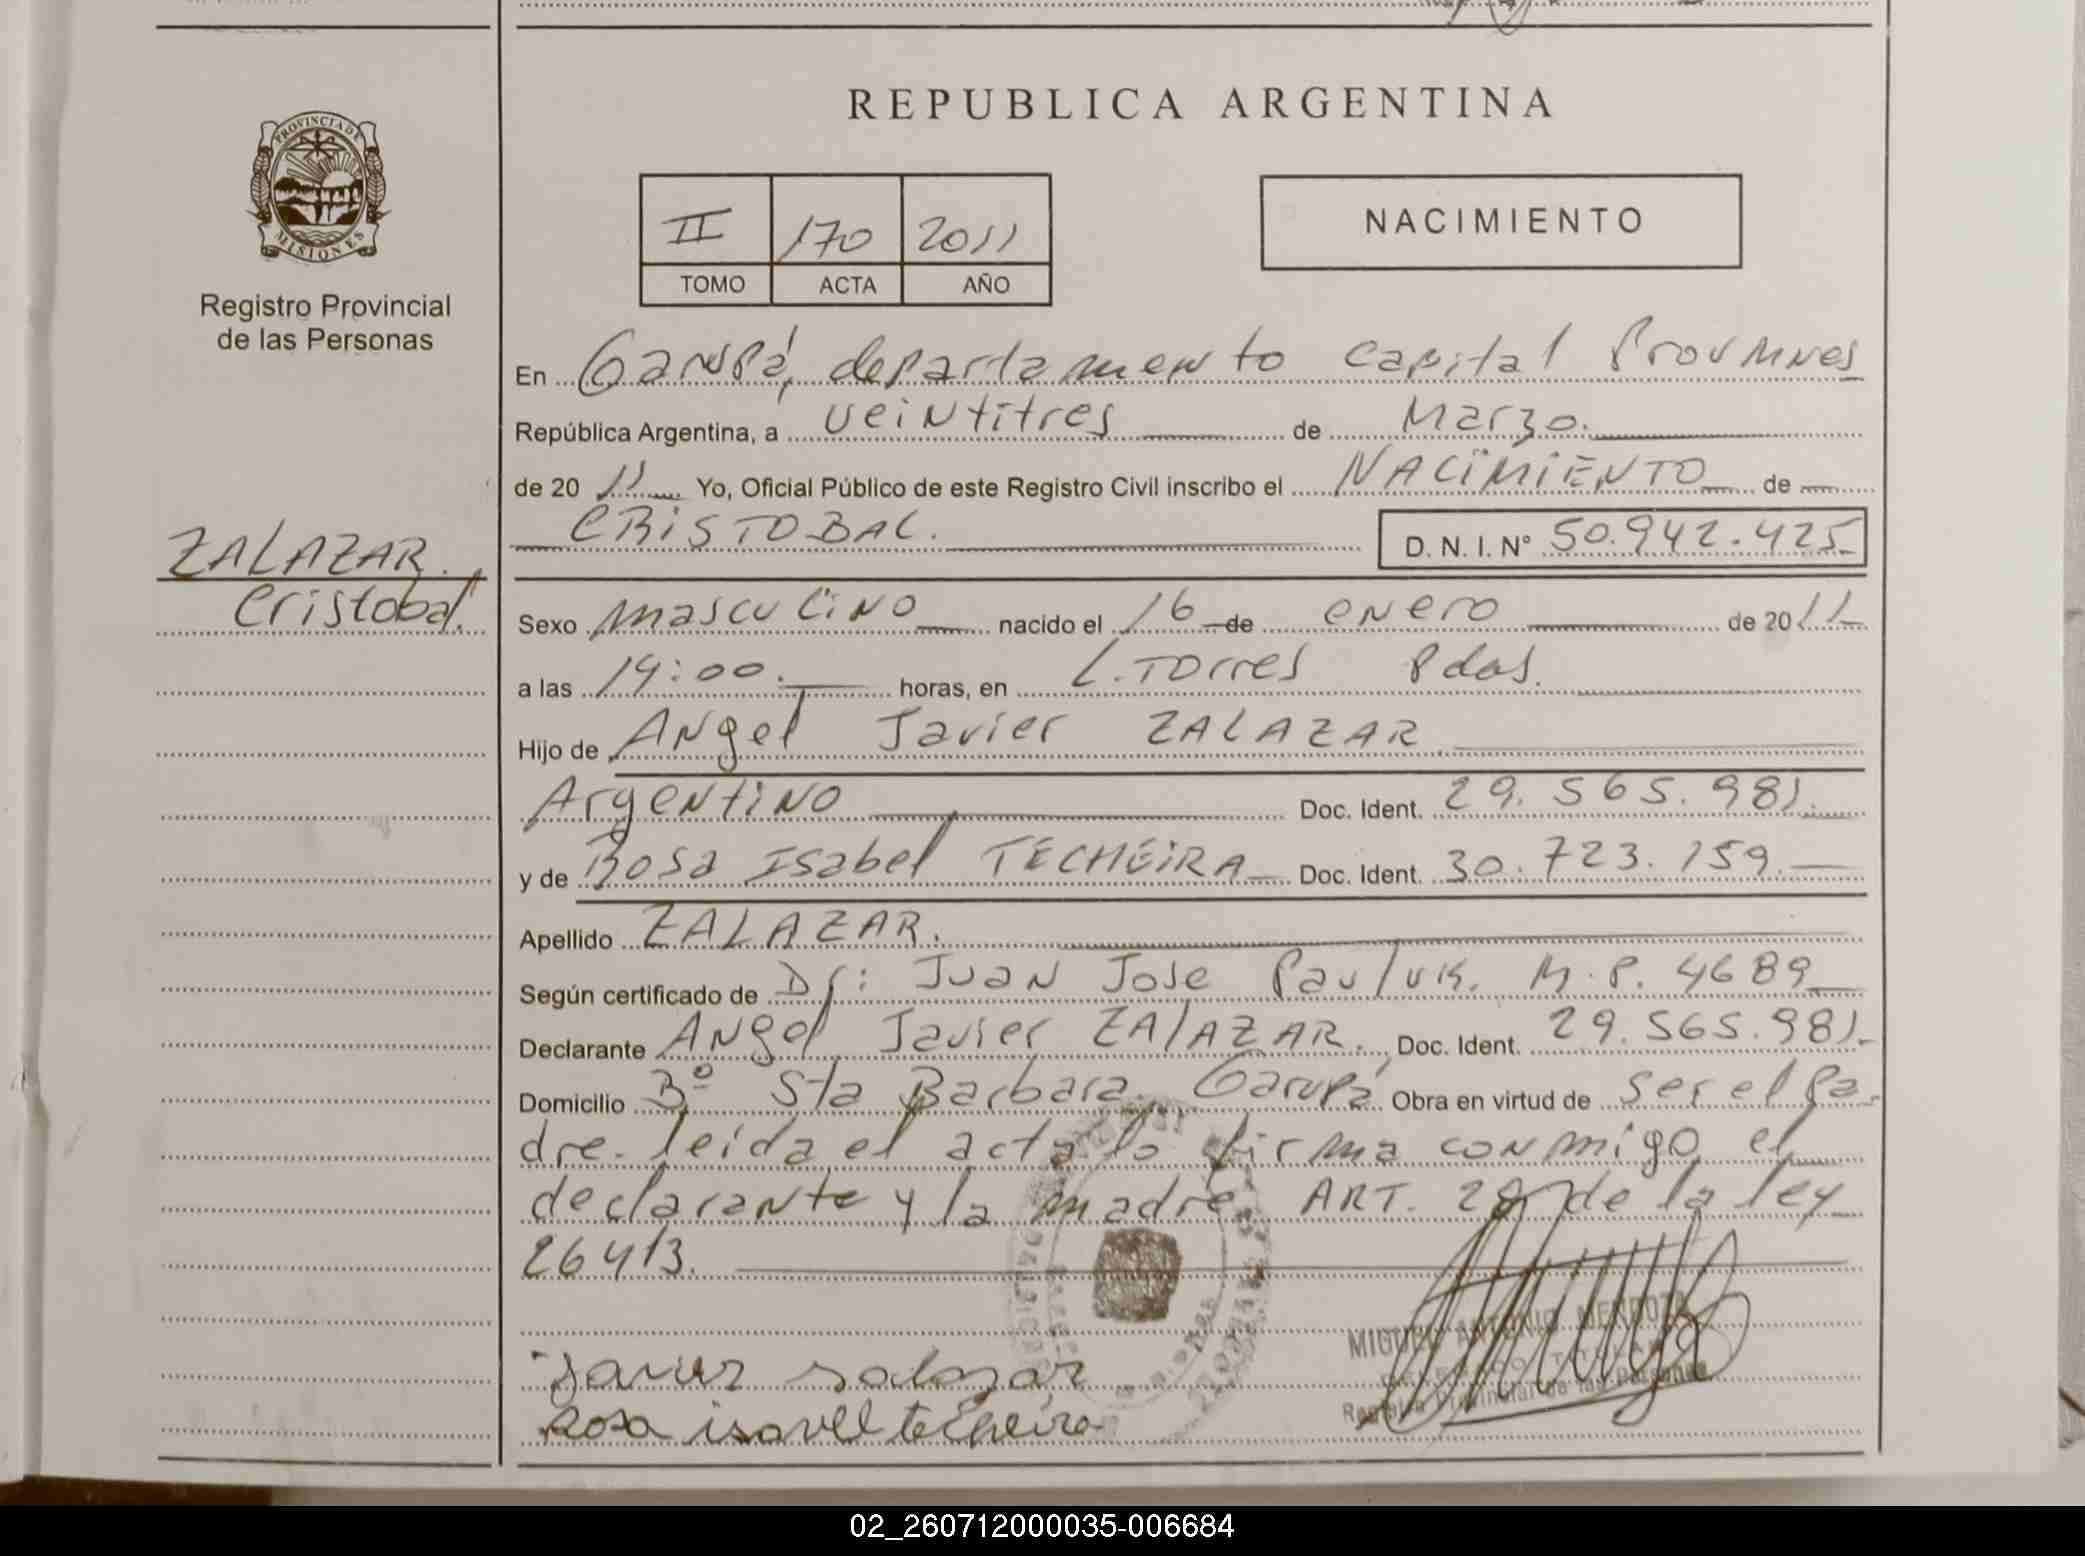 REPUBLICA ARGENTINA
PROVINCIA DE
MISIONES
Registro Provincial
de las Personas
II 170 2011
TOMO ACTA AÑO
NACIMIENTO
En Garupá, departamento capital Prov Mnes
República Argentina, a veintitres de Marzo.
de 20 11 Yo, Oficial Público de este Registro Civil inscribo el NACIMIENTO de
CRISTOBAL. D. N. I. N° 50.942.425
ZALAZAR.
Cristobal.
Sexo masculino nacido el 16 de enero de 20 11
a las 14:00. horas, en L. Torres Pdas.
Hijo de Angel Javier ZALAZAR
Argentino Doc. Ident. 29.565.981.
y de Rosa Isabel TECHEIRA Doc. Ident. 30.723.159.
Apellido ZALAZAR.
Según certificado de Dr: Juan Jose Pauluk. M.P. 4689
Declarante Angel Javier ZALAZAR. Doc. Ident. 29.565.981.
Domicilio Bº Sta Barbara. Garupá Obra en virtud de ser el Pa-
dre. leida el acta lo firma conmigo el
declarante y la madre ART. 28 de la ley
26413.
MIGUEL ANTONIO MENDOZA
Registro Provincial de las Personas
Javier salazar
Rosa isavel techeira
02_260712000035-006684